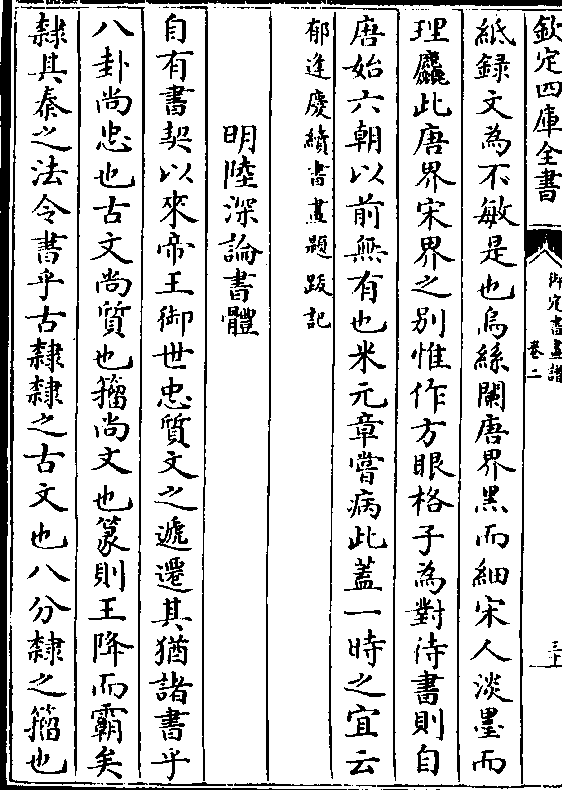 欽定四庫全書
御定書畫譜
卷二
三十
紙録文為不敏是也烏絲闌唐界黑而細宋人淡墨而
理麤此唐界宋界之别惟作方眼格子為對待書則自
唐始六朝以前無有也米元章嘗病此蓋一時之宜云
郁逢慶續書畫題跋記
明陸深論書體
自有書契以來帝王御世忠質文之遞遷其猶諸書乎
八卦尚忠也古文尚質也籀尚文也篆則王降而霸矣
隸其秦之法令書乎古隸隸之古文也八分隸之籀也